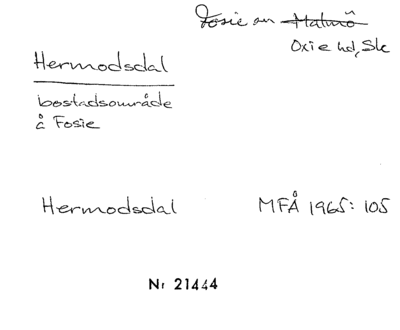 Fosie sn Malmö
Oxie hd, Sk
Hermodsdal
bostadsområde
å Fosie
Hermodsdal MFÅ 1965: 105
Nr 21444